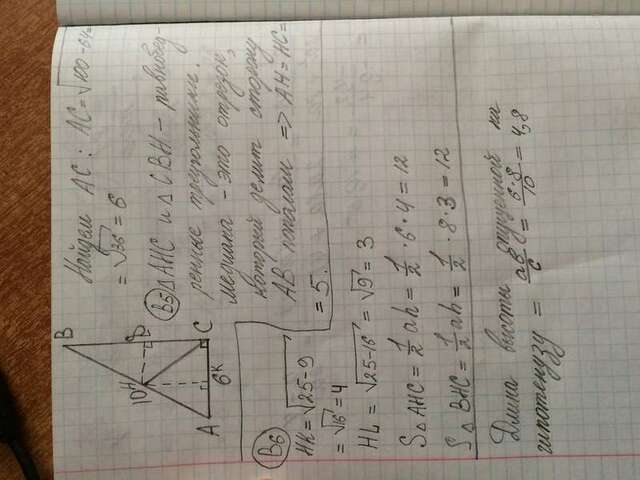 Найдем AC: AC = √100-64 =
= √36 = 6
B
10
H
P
A
6
K
C
B5 △AHC и △CBH - равнобед-
ренные треугольники.
Медиана - это отрезок,
который делит сторону
AB пополам => AH = HC =
= 5.
B6
HK = √25-9 =
= √16 = 4
HL = √25-16 = √9 = 3
S△AHC = 1/2 ah = 1/2 · 6 · 4 = 12
S△BHC = 1/2 ah = 1/2 · 8 · 3 = 12
Длина высоты опущенной на
гипотенузу = ab/c = 6·8/10 = 4,8